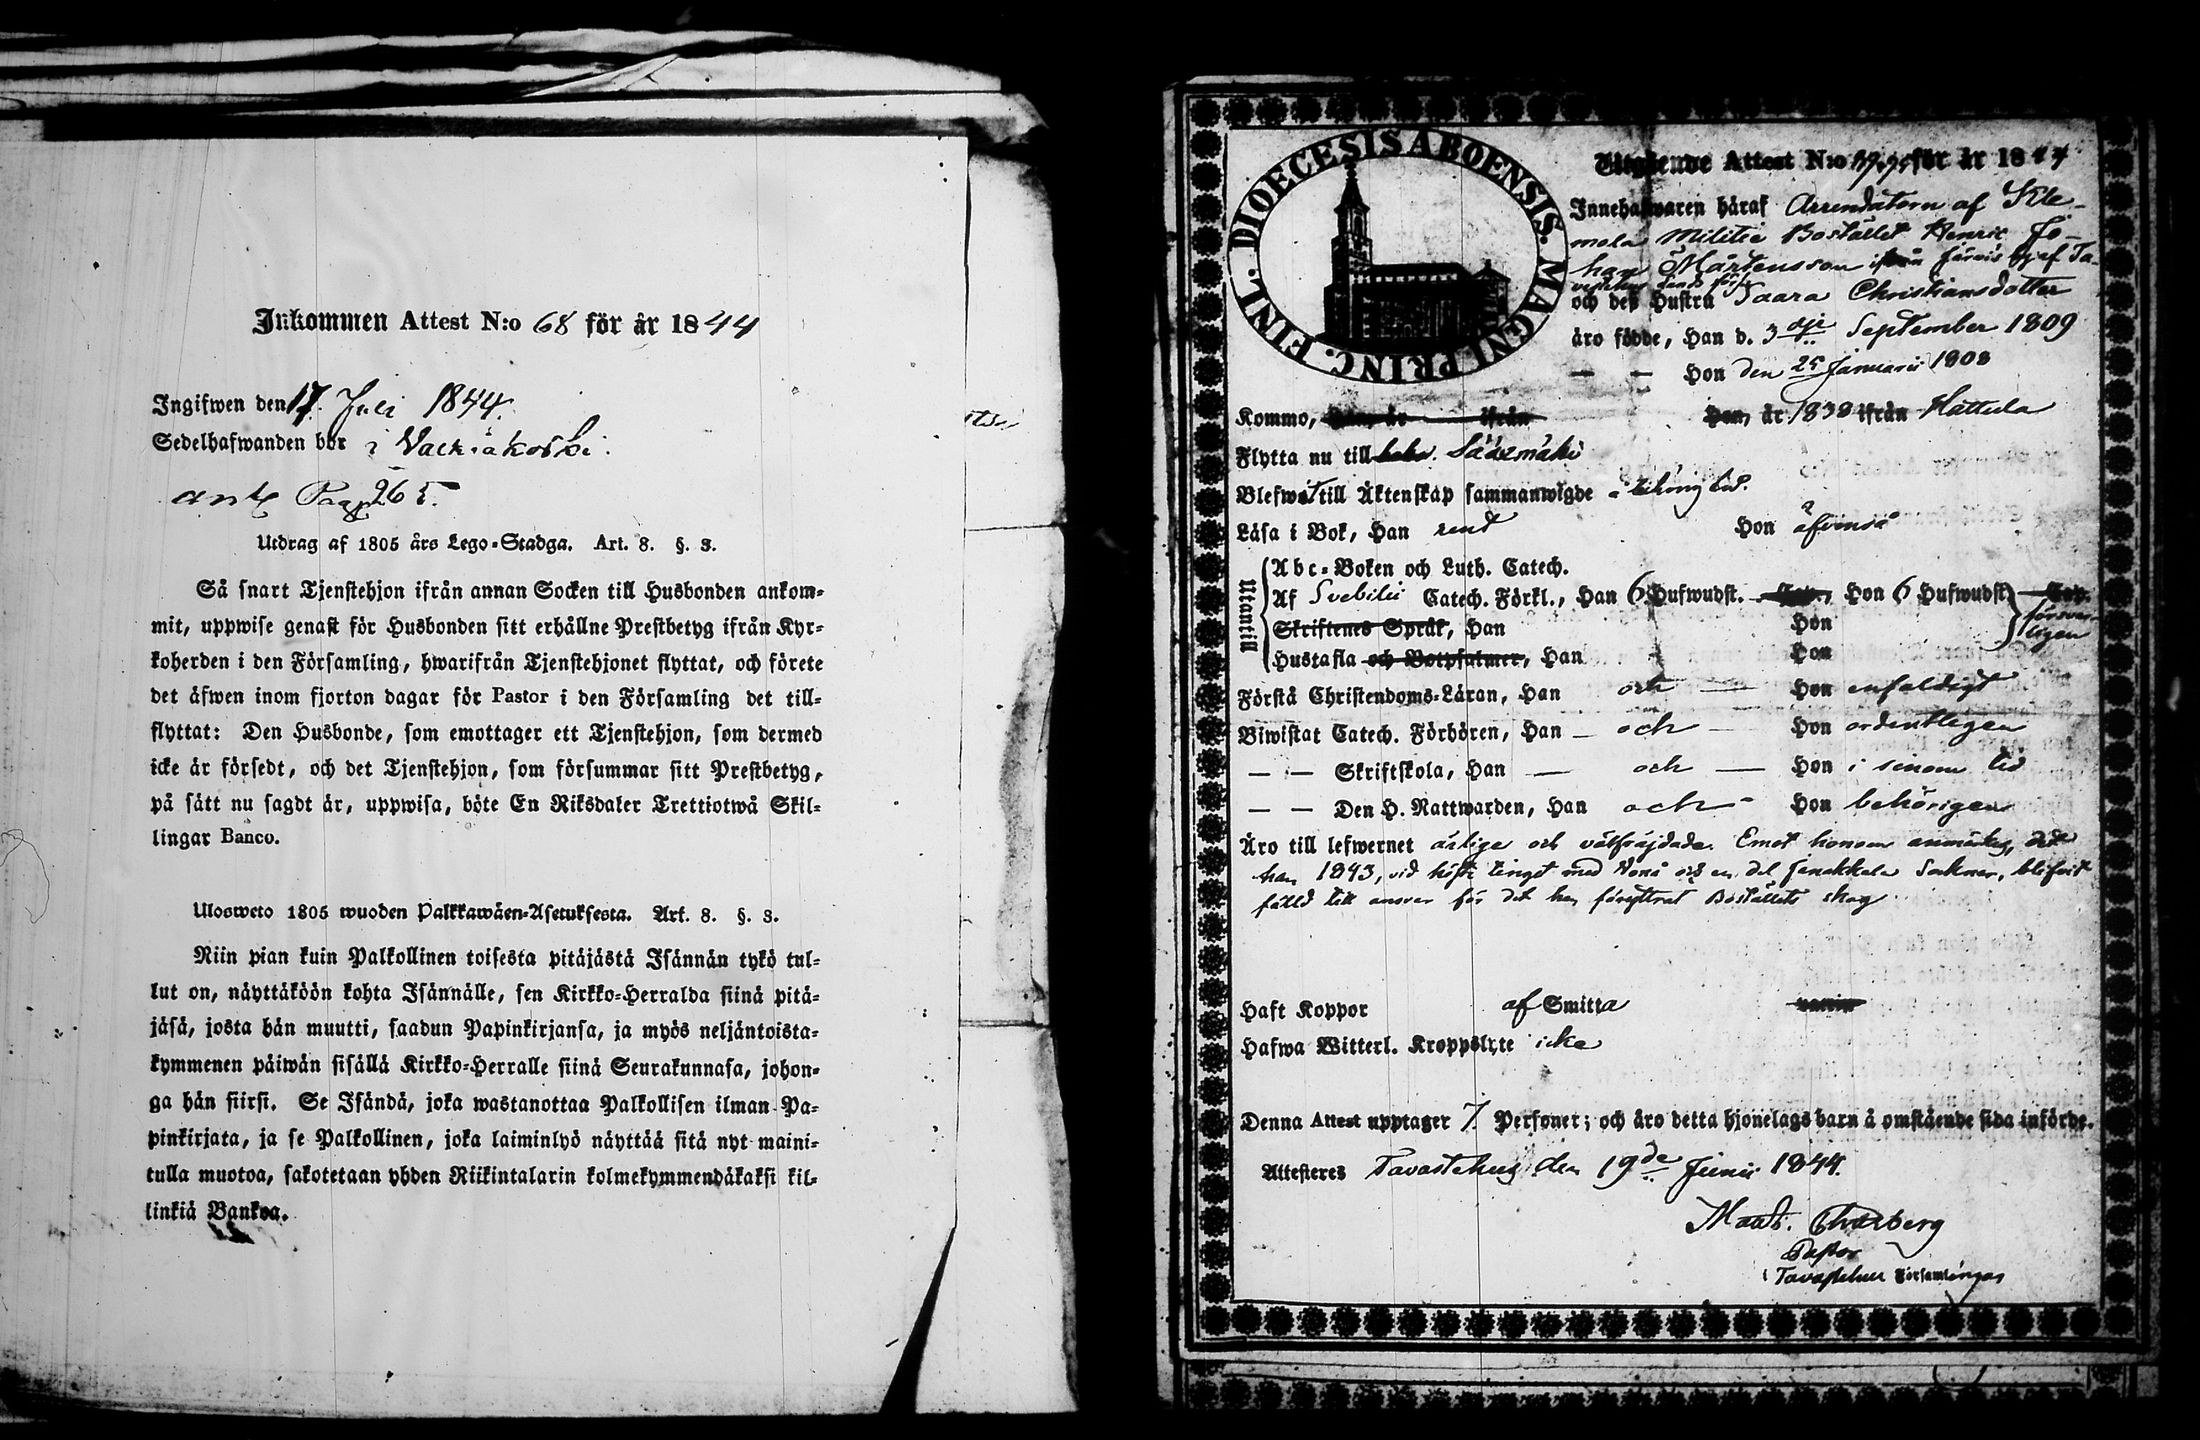 Inkommen Attest N:o 68 för år 1844
Ingifwen den 17. Juli 1844.
Sedelhafwanden bor i Valkiakoski.
ant. Pag 265.
Utdrag af 1805 års Lego-Stadga. Art. 8. §. 3.
Så snart Tjenstehjon ifrån annan Socken till Husbonden ankom-
mit, uppwise genast för Husbonden sitt erhållne Prestbetyg ifrån Kyr-
koherden i den Församling, hwarifrån Tjenstehjonet flyttat, och förete
det äfwen inom fjorton dagar för Pastor i den Församling det till-
flyttat: Den Husbonde, som emottager ett Tjenstehjon, som dermed
icke är försedt, och det Tjenstehjon, som försummar sitt Prestbetyg,
på sätt nu sagdt är, uppwisa, böte En Riksdaler Trettiotwå Skil-
lingar Banco.
Ulosweto 1805 wuoden Palkkawäen-Asetuksesta. Art. 8. §. 3.
Niin pian kuin Palkollinen toisesta pitäjästä Isännän tykö tul-
lut on, näyttäköön kohta Isännälle, sen Kirkko-Herralda siinä pitä-
jäsä, josta hän muutti, saadun Papinkirjansa, ja myös neljäntoista-
kymmenen päiwän sisällä Kirkko-Herralle siinä Seurakunnasa, johon-
ga hän siirsi. Se Isändä, joka wastanottaa Palkollisen ilman Pa-
pinkirjata, ja se Palkollinen, joka laiminlyö näyttää sitä nyt maini-
tulla muotoa, sakotetaan yhden Riikintalarin kolmekymmendäkaksi kil-
linkiä Bankoa.
DIOECESIS ABOENSIS. MAGNI PRINC. FINL.
Utgående Attest N:o för år 1844
Innehafwaren häraf Arrendatorn af Kle-
mola Militie Bostället Henric Jo-
han Mårtensson ifrån
och des Hustru Saara Christiansdotter
äro födde, Han d. 3dje September 1809
— — Hon den 25 Januarii 1808
Kommo, Han, år ifrån Hon, år 1838 ifrån Hattula
Flytta nu till Sääxmäki
Blefwet till Äktenskap sammanwigde i behörig tid.
Läsa i Bok, Han rent Hon äfvenså
Utantill
Abc-Boken och Luth. Catech.
Af Svebilii Catech. Förkl., Han 6 Hufwudst. Cap., Hon 6 Hufwudst. Cap.
försvar-
ligen
Skriftenes Språk, Han Hon
Hustafla och Botpsalmer, Han Hon
Förstå Christendoms-Läran, Han och — Hon enfaldigt
Biwistat Catech. Förhören, Han — och — Hon ordentligen
— — Skriftskola, Han — och — Hon i sinom tid
— — Den H. Nattwarden, Han och - Hon behörigen
Äro till lefwernet ärlige och välfrejdade. Emot honom anmärkes, att
han 1843, vid höste tinget med Vånå och en del Janakkala Socknar, blifvit
fälld till ansvar för det han föryttrat Boställets skog
Haft Koppor af Smitta
Hafwa Witterl. Kroppslyte icke
Denna Attest upptager 7. Personer; och äro detta hjonelags barn å omstående sida införde.
Attesteres Tavastehus den 19de Junii 1844.
Pastor
i Tavastehus Församlingar